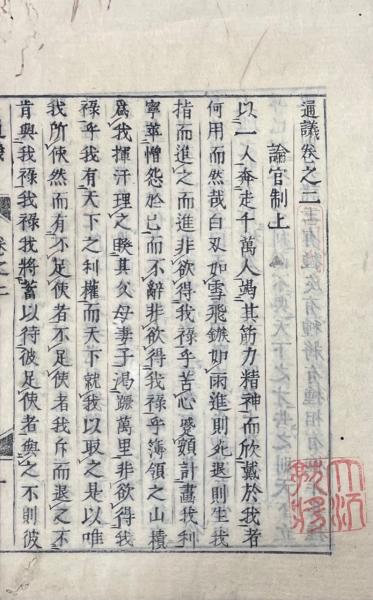 通議卷之二
論官制上
以一人奔走千萬人竭其筋力精神而欣戴於我者
何用而然哉白刃如雪飛鏃如雨進則死退則生我
指而進之而進非欲得我祿乎苦心蹙額計畫我利
寧萃憎怨於己而不辭非欲得我祿乎簿領之山積
爲我揮汗理之睽其父母妻子鴻蹶萬里非欲得我
祿乎我有天下之利權而天下就我以取之是以唯
我所使然而有不足使者不足使者我斥而退之不
肯與我祿我祿我將蓄以待彼足使者與之不則彼